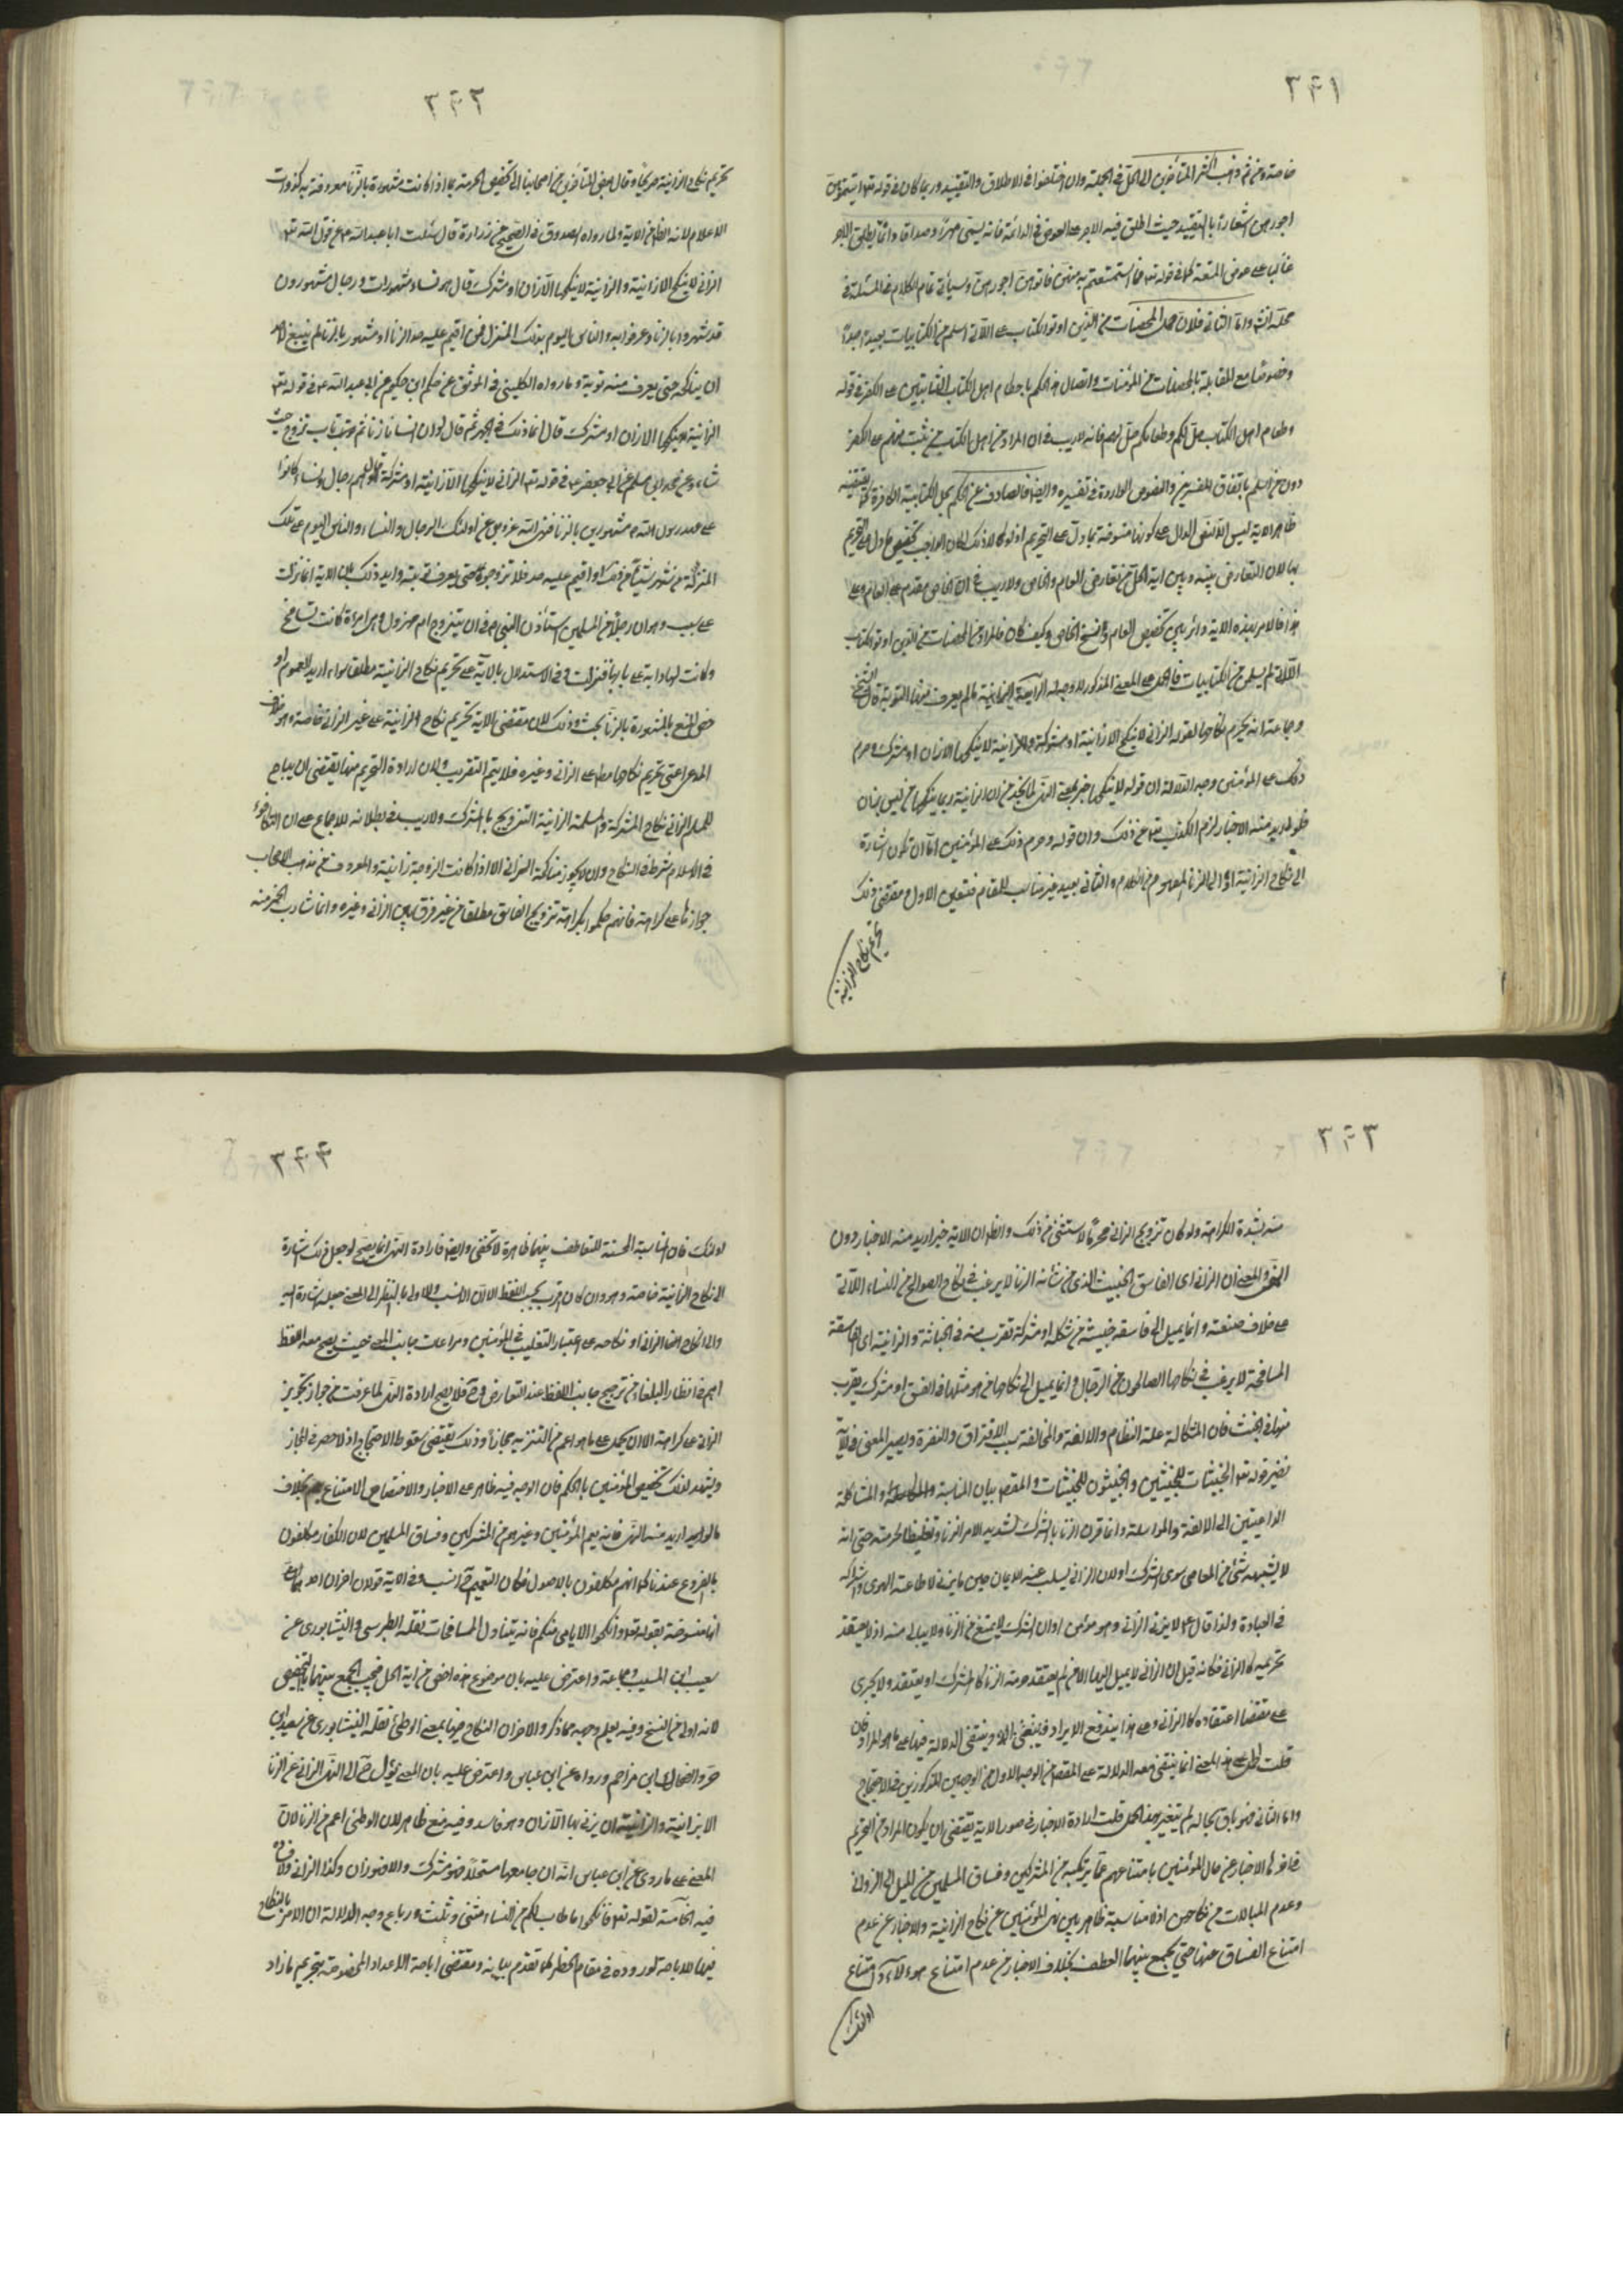 ٣٤١
خاصة ومن ثم ذهب اكثر المتأخرين الى الحل في الجملة وان اختلفوا في الاطلاق والتقييد وربما كان في قوله تع اتيتموهن
اجورهن اشعارا بالتقييد حيث اطلق فيه الاجر على العوض في الدائمة فانه يسمى مهرا وصداقا وانما يطلق الاجر
غالبا على عوض المتعة كما في قوله تع فما استمتعتم به منهن فاتوهن اجورهن وسيأتي تمام الكلام في المسئلة في
محله انش واما الثاني فلان حمل المحصنات من الذين اوتوا الكتاب على اللاتي اسلم من الكتابيات بعيد جدا
وخصوصا مع المقابلة بالمحصنات من المؤمنات واتصال هذا الحكم باحكام اهل الكتاب الثابتين على الكفر في قوله
وطعام اهل الكتاب حل لكم وطعامكم حل لهم فانه لا ريب في ان المراد من اهل الكتاب من ثبت منهم على الكفر
دون من اسلم باتفاق المفسرين والنصوص الواردة في تفسيره وايضا فالصارف عن الحكم بحل الكتابية الكافرة كما يقتضيه
ظاهر الاية ليس الا النص الدال على كونها منسوخة بما دل على التحريم اذ لولا ذلك لكان الواجب تخصيص ما دل على التحريم
بها لان التعارض بينه وبين اية الحل من تعارض العام والخاص ولا ريب في ان الخاص مقدم على العام وعلى
هذا فالامر بهذه الاية دائر بين تخصيص العام والنسخ الخاص وكيف كان فالمراد من المحصنات من الذين اوتوا الكتاب
اللاتي لم يسلمن من الكتابيات فالحمل على المعنى المذكور لا وجه له الرابعة الزانية ما لم يعرف منها التوبة قال الشيخ
وجماعة انه يحرم نكاحها لقوله الزاني لا ينكح الا زانية او مشركة والزانية لا ينكحها الا زان او مشرك وحرم
ذلك على المؤمنين وجه الدلالة ان قوله لا ينكحها خبر بمعنى النهى لما نجد من ان الزانية ربما ينكحها من ليس بزان
فلو اريد منه الاخبار لزم الكذب تع عن ذلك وان قوله وحرم ذلك على المؤمنين اما ان تكون اشارة
الى نكاح الزانية او الى الزنا المفهوم من الكلام والثاني بعيد غير مناسب للمقام فتعين الاول ومقتضى ذلك
تحريم نكاح الزانية
٣٤٢
تحريم نكاح الزانية صريحا وقال بعض المتأخرين من اصحابنا الى تخصيص الحرمة بما اذا كانت مشهورة بالزنا معروفة به كذوات
الاعلام لانه الظاهر من الاية ولما رواه الصدوق في الصحيح عن زرارة قال سئلت ابا عبد الله ع عن قول الله تع
الزاني لا ينكح الا زانية والزانية لا ينكحها الا زان او مشرك قال هو نساء مشهورات ورجال مشهورون
قد شهروا بالزنا وعرفوا به والناس اليوم بذلك المنزل فمن اقيم عليه حد الزنا او مشهور بالزنا لم ينبغ لاحد
ان يناكحه حتى يعرف منه توبة وما رواه الكليني في الموثق عن حكم ابن حكيم عن ابي عبد الله ع في قوله تع
الزانية لا ينكحها الا زان او مشرك قال انما ذلك في الجهر ثم قال لو ان انسانا زنا ثم تاب تزوج حيث
شاء وعن محمد ابن مسلم عن ابي جعفر ع في قوله تع الزاني لا ينكح الا زانية او مشركة قال هم رجال ونساء كانوا
على عهد رسول الله ص مشهورين بالزنا فنهى الله عز وجل عن اولئك الرجال والنساء والناس اليوم على تلك
المنزلة من شهر شيئا من ذلك او اقيم عليه حد فلا تزوجوه حتى يعرف توبته وايد ذلك بان الاية انما نزلت
على سبب وهو ان رجلا من المسلمين استأذن النبي ص في ان يتزوج ام مهزول وهى امراة كانت تسافح
وكانت لها راية على بابها فنزلت وفي الاستدلال بالاية على تحريم نكاح الزانية مطلقا سواء اريد العموم او
خص المنع بالمشهورة بالزنا بحث وذلك لان مقتضى الاية تحريم نكاح الزانية على غير الزاني خاصة وهو خلاف
المدعى اعنى تحريم نكاحها مطلقا على الزاني وغيره فلا يتم التقريب ولان ارادة التحريم منها يقتضى ان يباح
للمسلم الزاني نكاح المشركة وللمسلمة الزانية التزويج بالمشرك ولا ريب في بطلانه للاجماع على ان التكافؤ
في الاسلام شرط في النكاح وان لا يجوز مناكحة الزاني الا اذا كانت الزوجة زانية والمعروف من مذهب الاصحاب
جوازها على كراهة فانهم حكموا بكراهة تزويج الفاسق مطلقا من غير فرق بين الزاني وغيره وانما شارب الخمر منه
٣٤٣
منه بشدة الكراهة ولو كان تزويج الزاني محرما لاستثنى من ذلك والظ ان الاية خبر اريد منه الاخبار دون
النهى والمعنى ان الزاني اى الفاسق الخبيث الذى من شانه الزنا لا يرغب في نكاح الصوالح من النساء اللاتي
على خلاف صنعته وانما يميل الى فاسقة خبيثة من شكله او مشركة تقرب منه في الخباثة والزانية اى الفاسقة
المسافحة لا يرغب في نكاحها الصالحون من الرجال وانما يميل الى نكاحها من هو مثلها في الفسق او مشرك يقرب
منها في الخبث فان المشاكلة علة النظام والالفة والمخالفة سبب الافتراق والنفرة ويصير المعنى في الاية
نظير قوله تع الخبيثات للخبيثين والخبيثون للخبيثات والمقصد بيان المناسبة والمشاكلة
الداعيتين الى الالفة والمواصلة وانما قرن الزنا بالشرك لشديد الامر الزنا وتغليظا لحرمته حتى انه
لا يشبهه شئ من المعاصى سوى الشرك او لان الزاني يسلب عنه الايمان حين ما يزني لاطاعته الهوى واشراكه
في العبادة ولذا قال ع لا يزني الزاني وهو مؤمن او ان الشرك لا يمتنع من الزنا ولا يبالى منه اذ لا يعتقد
تحريمه كالزاني فكانه قيل ان الزاني لا يميل اليها الا من لم يعتقد حرمة الزنا كالمشرك او يعتقد ولا يجرى
على مقتضا اعتقاده كالزاني وعلى هذا يندفع الايراد وينتفى الدلالة فيها على ما هو المراد فان
قلت الحمل على هذا المعنى انما ينتفى معه الدلالة على المقصد من الوجه الاول من الوجهين المذكورين في الاحتجاج
واما الثاني فهو باق بحاله لم يتغير بهذا الحمل قلت ارادة الاخبار في صدر الاية يقتضى ان يكون المراد من التحريم
فى الاخبار عن حال المؤمنين بامتناعهم عما يرتكبه من المشركين وفساق المسلمين من الميل الى الزواني
وعدم المبالات من نكاحهن اذ لا مناسبة ظاهر بين نهى المؤمنين عن نكاح الزانية والاخبار عن عدم
امتناع الفساق عنها حتى يجمع بينهما العطف بخلاف الاخبار من عدم امتناع هؤلاء وامتناع
اولئك
٣٤٤
اولئك فان المناسبة الحسنة للتعاطف بينهما ظاهرة لا تخفى وايضا فارادة النهى انما يصح لو جعل ذلك اشارة
الى نكاح الزانية خاصة وهو وان كان اقرب بحسب اللفظ الا ان الانسب والاولى بالنظر الى المعنى جعله اشارة اليه
والى نكاح الزاني او نكاحه على اعتبار التغليب في المؤمنين ومراعات جانب المعنى حيث يصح معه اللفظ
اهم في انظار البلغاء من ترجيح جانب اللفظ عند التعارض وح فلا يصح ارادة النهى لما عرفت من جواز تجويز
الزاني على كراهة الا ان يحمل على ما هو اعم من التنزيه مجازا وذلك يقتضى سقوط الاحتجاج اذ لا حصر في المجاز
ويشهد لذلك تخصيص المؤمنين بالحكم فان الوجه فيه ظاهر على الاخبار والاختصاص الامتناع بهم بخلاف
ما لو اريد منه النهى فانه يعم المؤمنين وغيرهم من المشركين وفساق المسلمين لان الكفار مكلفون
بالفروع عندنا كما انهم مكلفون بالاصول فكان التعميم ح انسب وفي الاية قولان اخران احدهما
انها منسوخة بقوله تع وانكحوا الايامى منكم فانه يتناول المسافحات نقله الطبرسى والنيشابورى عن
سعيد ابن المسيب وجماعة واعترض عليه بان موضوع هذه اخص من اية الحل فيجب الجمع بينهما بالتخصيص
لانه اولى من النسخ وفيه يعلم وجهه مما ذكر والاخر ان النكاح فيها بمعنى الوطئ نقله النيشابورى عن سعيد ابن
والضحاك ابن مزاحم ورواه عن ابن عباس واعترض عليه بان المعنى يؤل ح الى نهى الزاني عن الزنا
الا بزانية والزانية ان يزني بها الا زان وهو فاسد وفيه منع ظاهر لان الوطئ اعم من الزنا لان
المعنى على ما روى عن ابن عباس انه ان جامعها مستحلا فهو مشرك والا فهو زان وكذا الزاني
فيه الخامسة لقوله تع فانكحوا ما طاب لكم من النساء مثنى وثلث ورباع وجه الدلالة ان الامر بالنكاح
فيها للاباحة لوروده في مقام الحظر كما تقدم بيانه ومقتضى اباحة الاعداد المخصوصة تحريم ما زاد